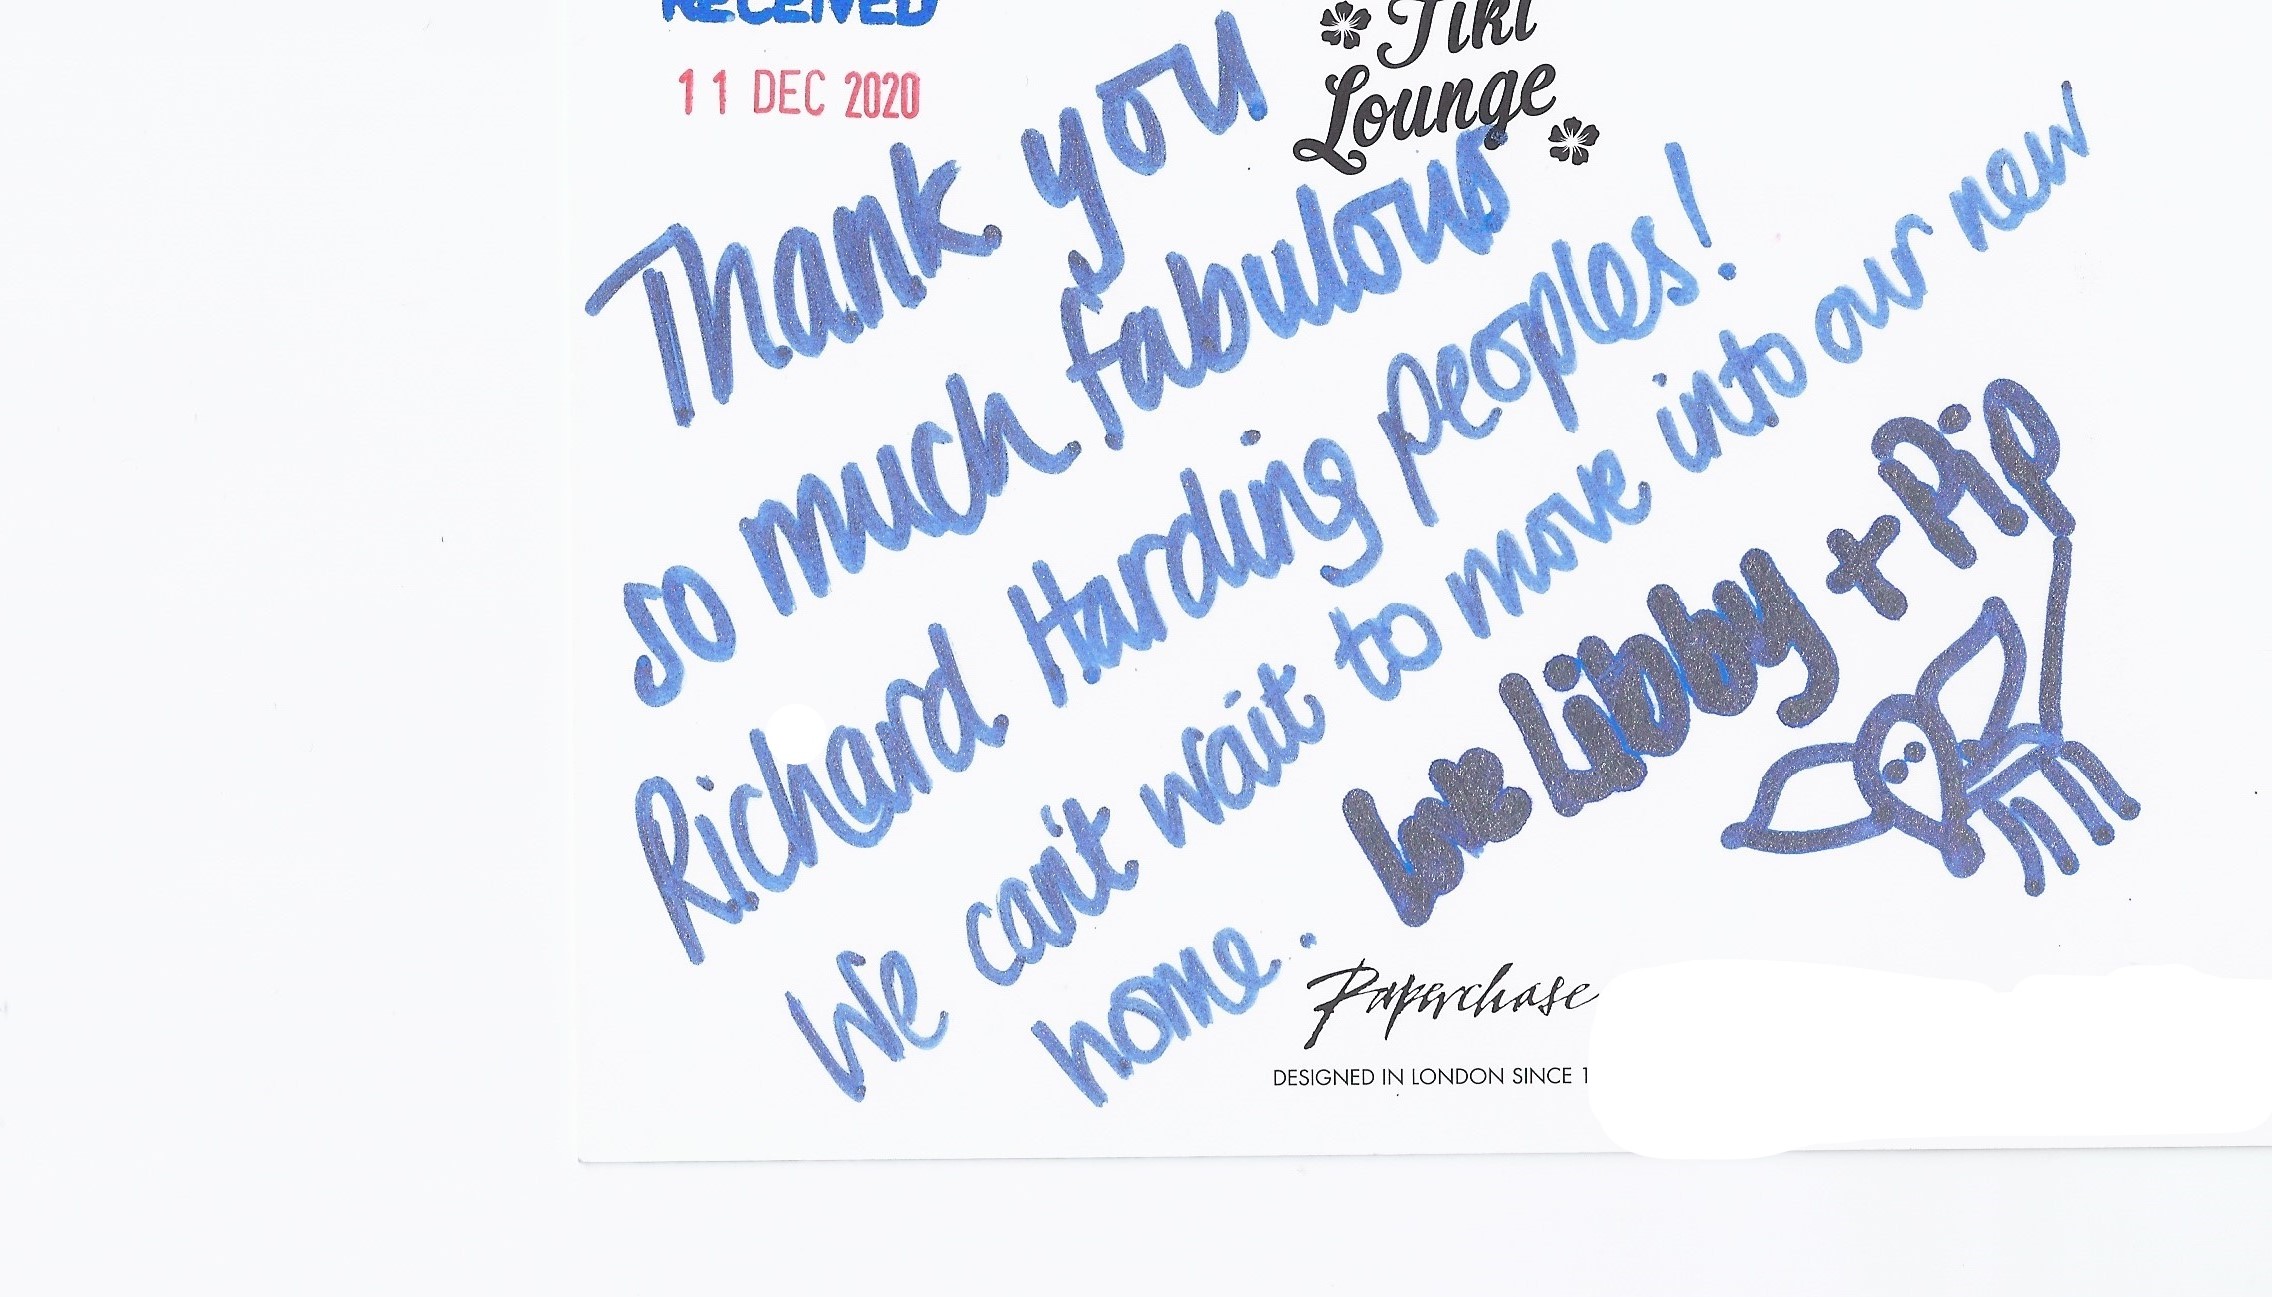 RECEIVED
11 DEC 2020
Tiki
Lounge
Thank you
so much fabulous
Richard Harding peoples!
We can't wait to move into our new
home.
Love Libby + Pip
Paperchase
DESIGNED IN LONDON SINCE 1